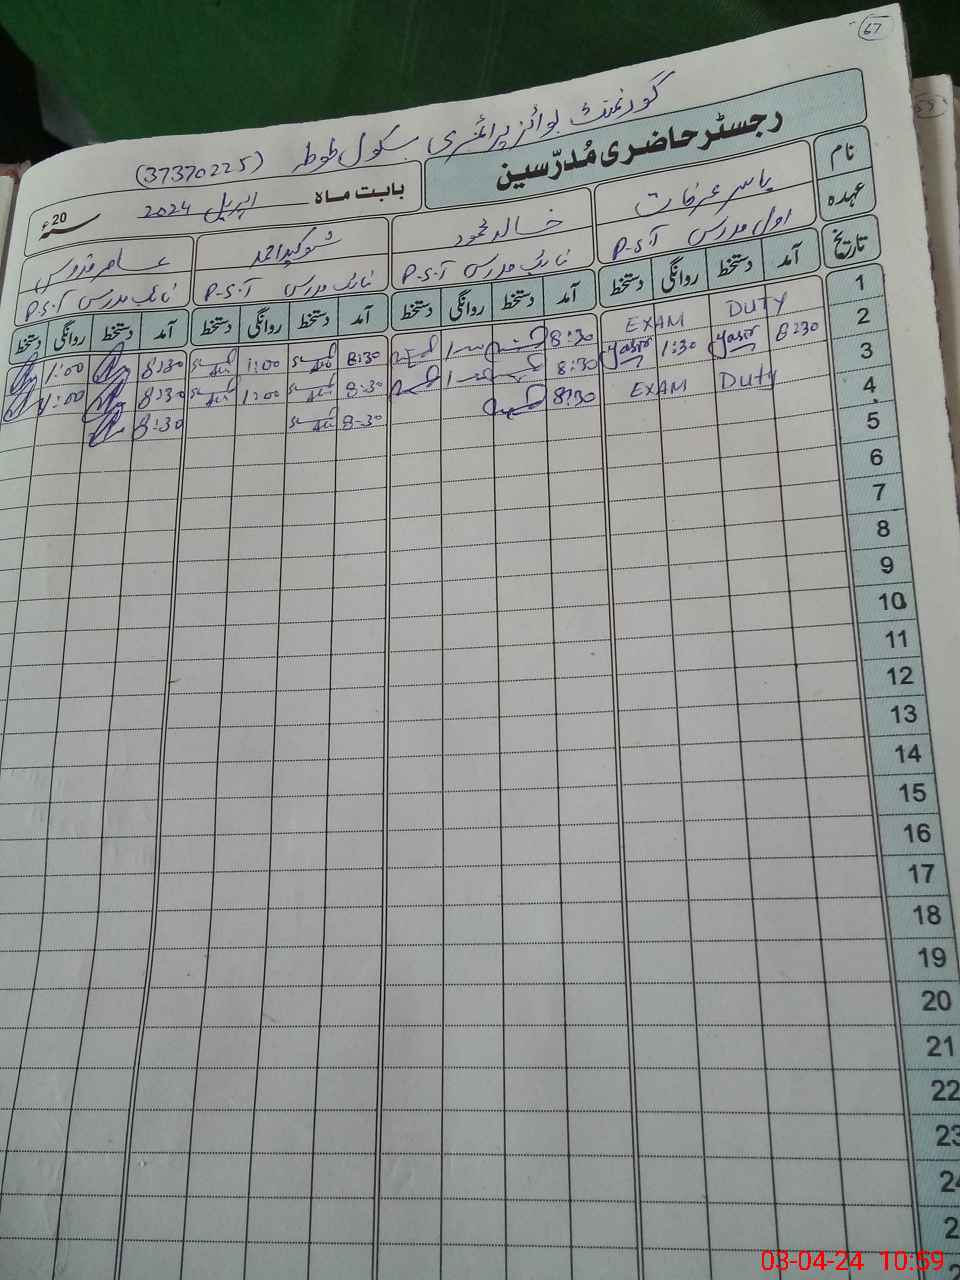 67
گورنمنٹ بوائز پرائمری سکول طوطہ (37370225)
رجسٹر حاضری مُدرّسین
بابت ماہ اپریل 2024 سنہ 20ء
نام یاسر عرفات خالد محمود شوکیداحمد
عہدہ اول مدرس P.S.T نائب مدرس P.S.T نائب مدرس P.S.T نائب مدرس P.S.T
تاریخ آمد دستخط روانگی دستخط آمد دستخط روانگی دستخط آمد دستخط روانگی دستخط آمد دستخط روانگی دستخط
1 EXAM DUTY 8:30 8:30 1:00 8:30 1:00
2 8:30 Yasir 1:30 Yasir 8:30 8:30 1:00 8:30 1:00
3 EXAM Duty 8:30 8:30 8:30
4
5
6
7
8
9
10
11
12
13
14
15
16
17
18
19
20
21
22
23
03-04-24 10:59